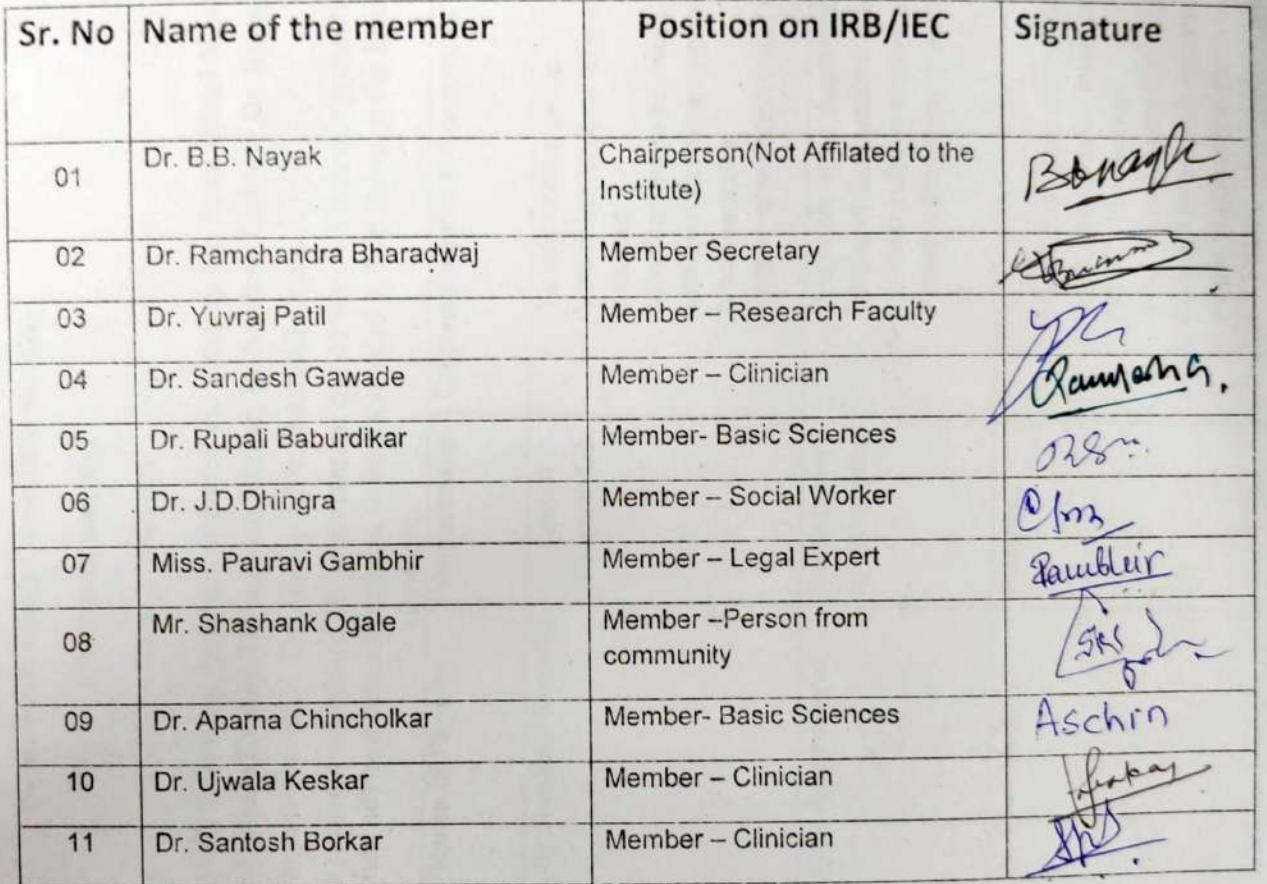 Sr. No Name of the member Position on IRB/IEC Signature
01 Dr. B.B. Nayak Chairperson(Not Affilated to the
Institute)
02 Dr. Ramchandra Bharadwaj Member Secretary
03 Dr. Yuvraj Patil Member – Research Faculty
04 Dr. Sandesh Gawade Member – Clinician
05 Dr. Rupali Baburdikar Member- Basic Sciences
06 Dr. J.D.Dhingra Member – Social Worker
07 Miss. Pauravi Gambhir Member – Legal Expert
08 Mr. Shashank Ogale Member –Person from
community
09 Dr. Aparna Chincholkar Member- Basic Sciences Aschin
10 Dr. Ujwala Keskar Member – Clinician
11 Dr. Santosh Borkar Member – Clinician